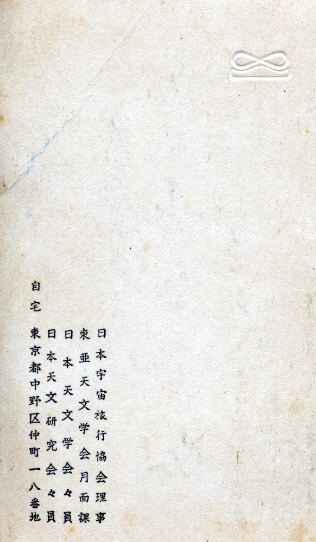 日本宇宙旅行協会理事
東亜天文学会月面課
日本天文学会々員
日本天文研究会々員
自宅 東京都中野区仲町一八番地